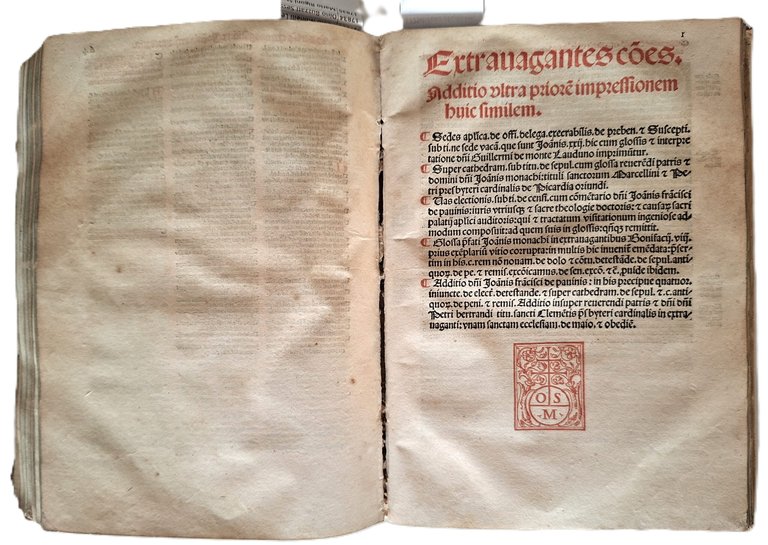 1
Extrauagantes cões.
Additio vltra priorē impressionem
huic similem.
¶ Sedes aplica. de offi. delega. execrabilis. de preben. ⁊ Suscepti.
sub ti. ne sede vacā. que sunt Joānis. xxij. hic cum glossis ⁊ interpre
tatione dñi Guillermi de monte Lauduno imprimūtur.
¶ Super cathedram. sub titu. de sepul. cum glosa reuerēdi patris ⁊
domini dñi Joānis monachi: tituli sanctorum Marcellini ⁊ Pe
tri presbyteri cardinalis de Picardia oriundi.
¶ Uas electionis. sub ti. de censi. cum cōmētario dñi Joānis frācisci
de pauinis: iuris vtriusqȝ ⁊ sacre theologie doctoris: ⁊ causaȝ sacri
palatij aplici auditoris: qui ⁊ tractatum visitationum ingeniose ad
modum composuit: ad quem suis in glossis: qñqȝ remittit.
¶ Glossa pfati Joānis monachi in extrauagantibus Bonifacij. viij.
prius exēplariū vitio corrupta: in multis hic inuenit emēdata: psser-
tim in his. c. rem nō nouam. de dolo ⁊ cōtu. detestāde. de sepul. anti-
quoȝ. de pe. ⁊ remis. excōicamus. de sen. excō. ⁊ c̄. puide ibidem.
¶ Additio dñi Joānis frācisci de pauinis: in his precipue quatuor.
iniuncte. de elect. detestande. ⁊ super cathedram. de sepul. ⁊ c. anti-
quoȝ. de peni. ⁊ remis. Additio insuper reuerendi patris ⁊ dñi dñi
Petri bertrandi titu. sancti Clemētis psbyteri cardinalis in extra-
uaganti: vnam sanctam ecclesiam. de maio. ⁊ obediē.
O S
M